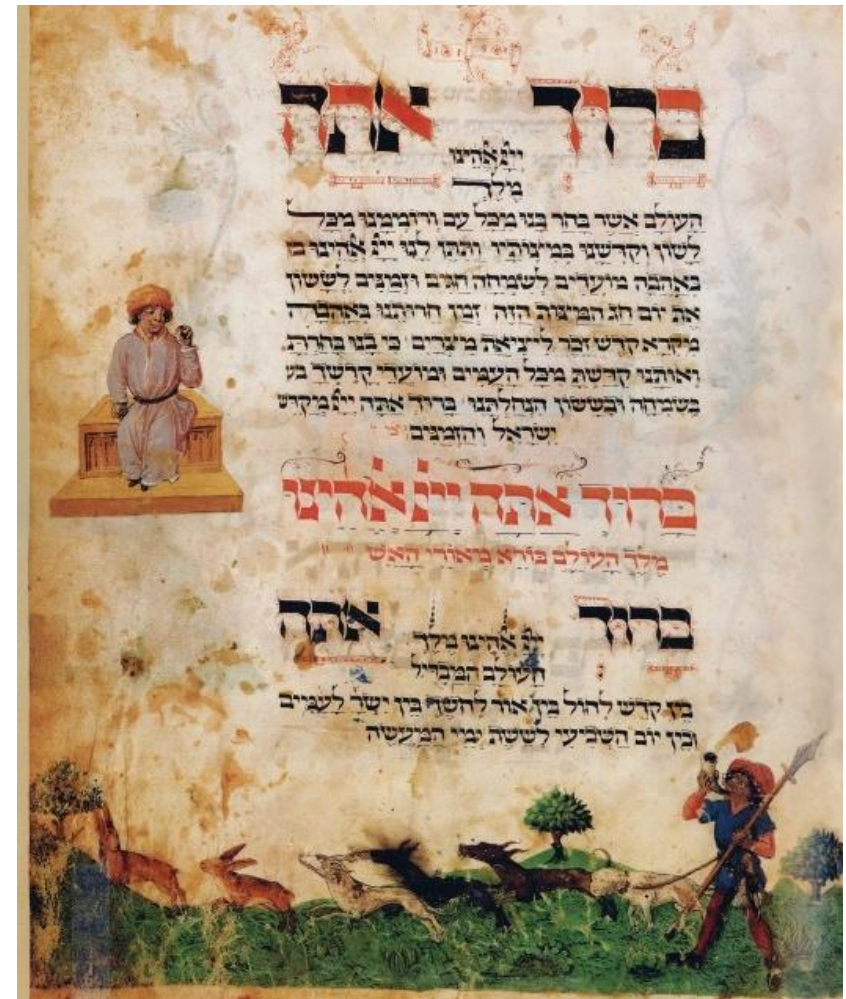 ברוך אתה
ייי אלהינו
מלך
העולם אשר בחר בנו מכל עם ורוממנו מכל
לשון וקדשנו במצותיו ותתן לנו ייי אלהינו
באהבה מועדים לשמחה חגים וזמנים לששון
את יום חג המצות הזה זמן חרותנו באהבה
מקרא קדש זכר ליציאת מצרים כי בנו בחרת
ואותנו קדשת מכל העמים ומועדי קדשך בש
בשמחה ובששון הנחלתנו ברוך אתה ייי מקדש
ישראל והזמנים
ברוך אתה ייי אלהינו
מלך העולם בורא מאורי האש
ברוך אתה
ייי אלהינו מלך
העולם המבדיל
בין קדש לחול בין אור לחשך בין ישר לעמים
ובין יום השביעי לששת ימי המעשה